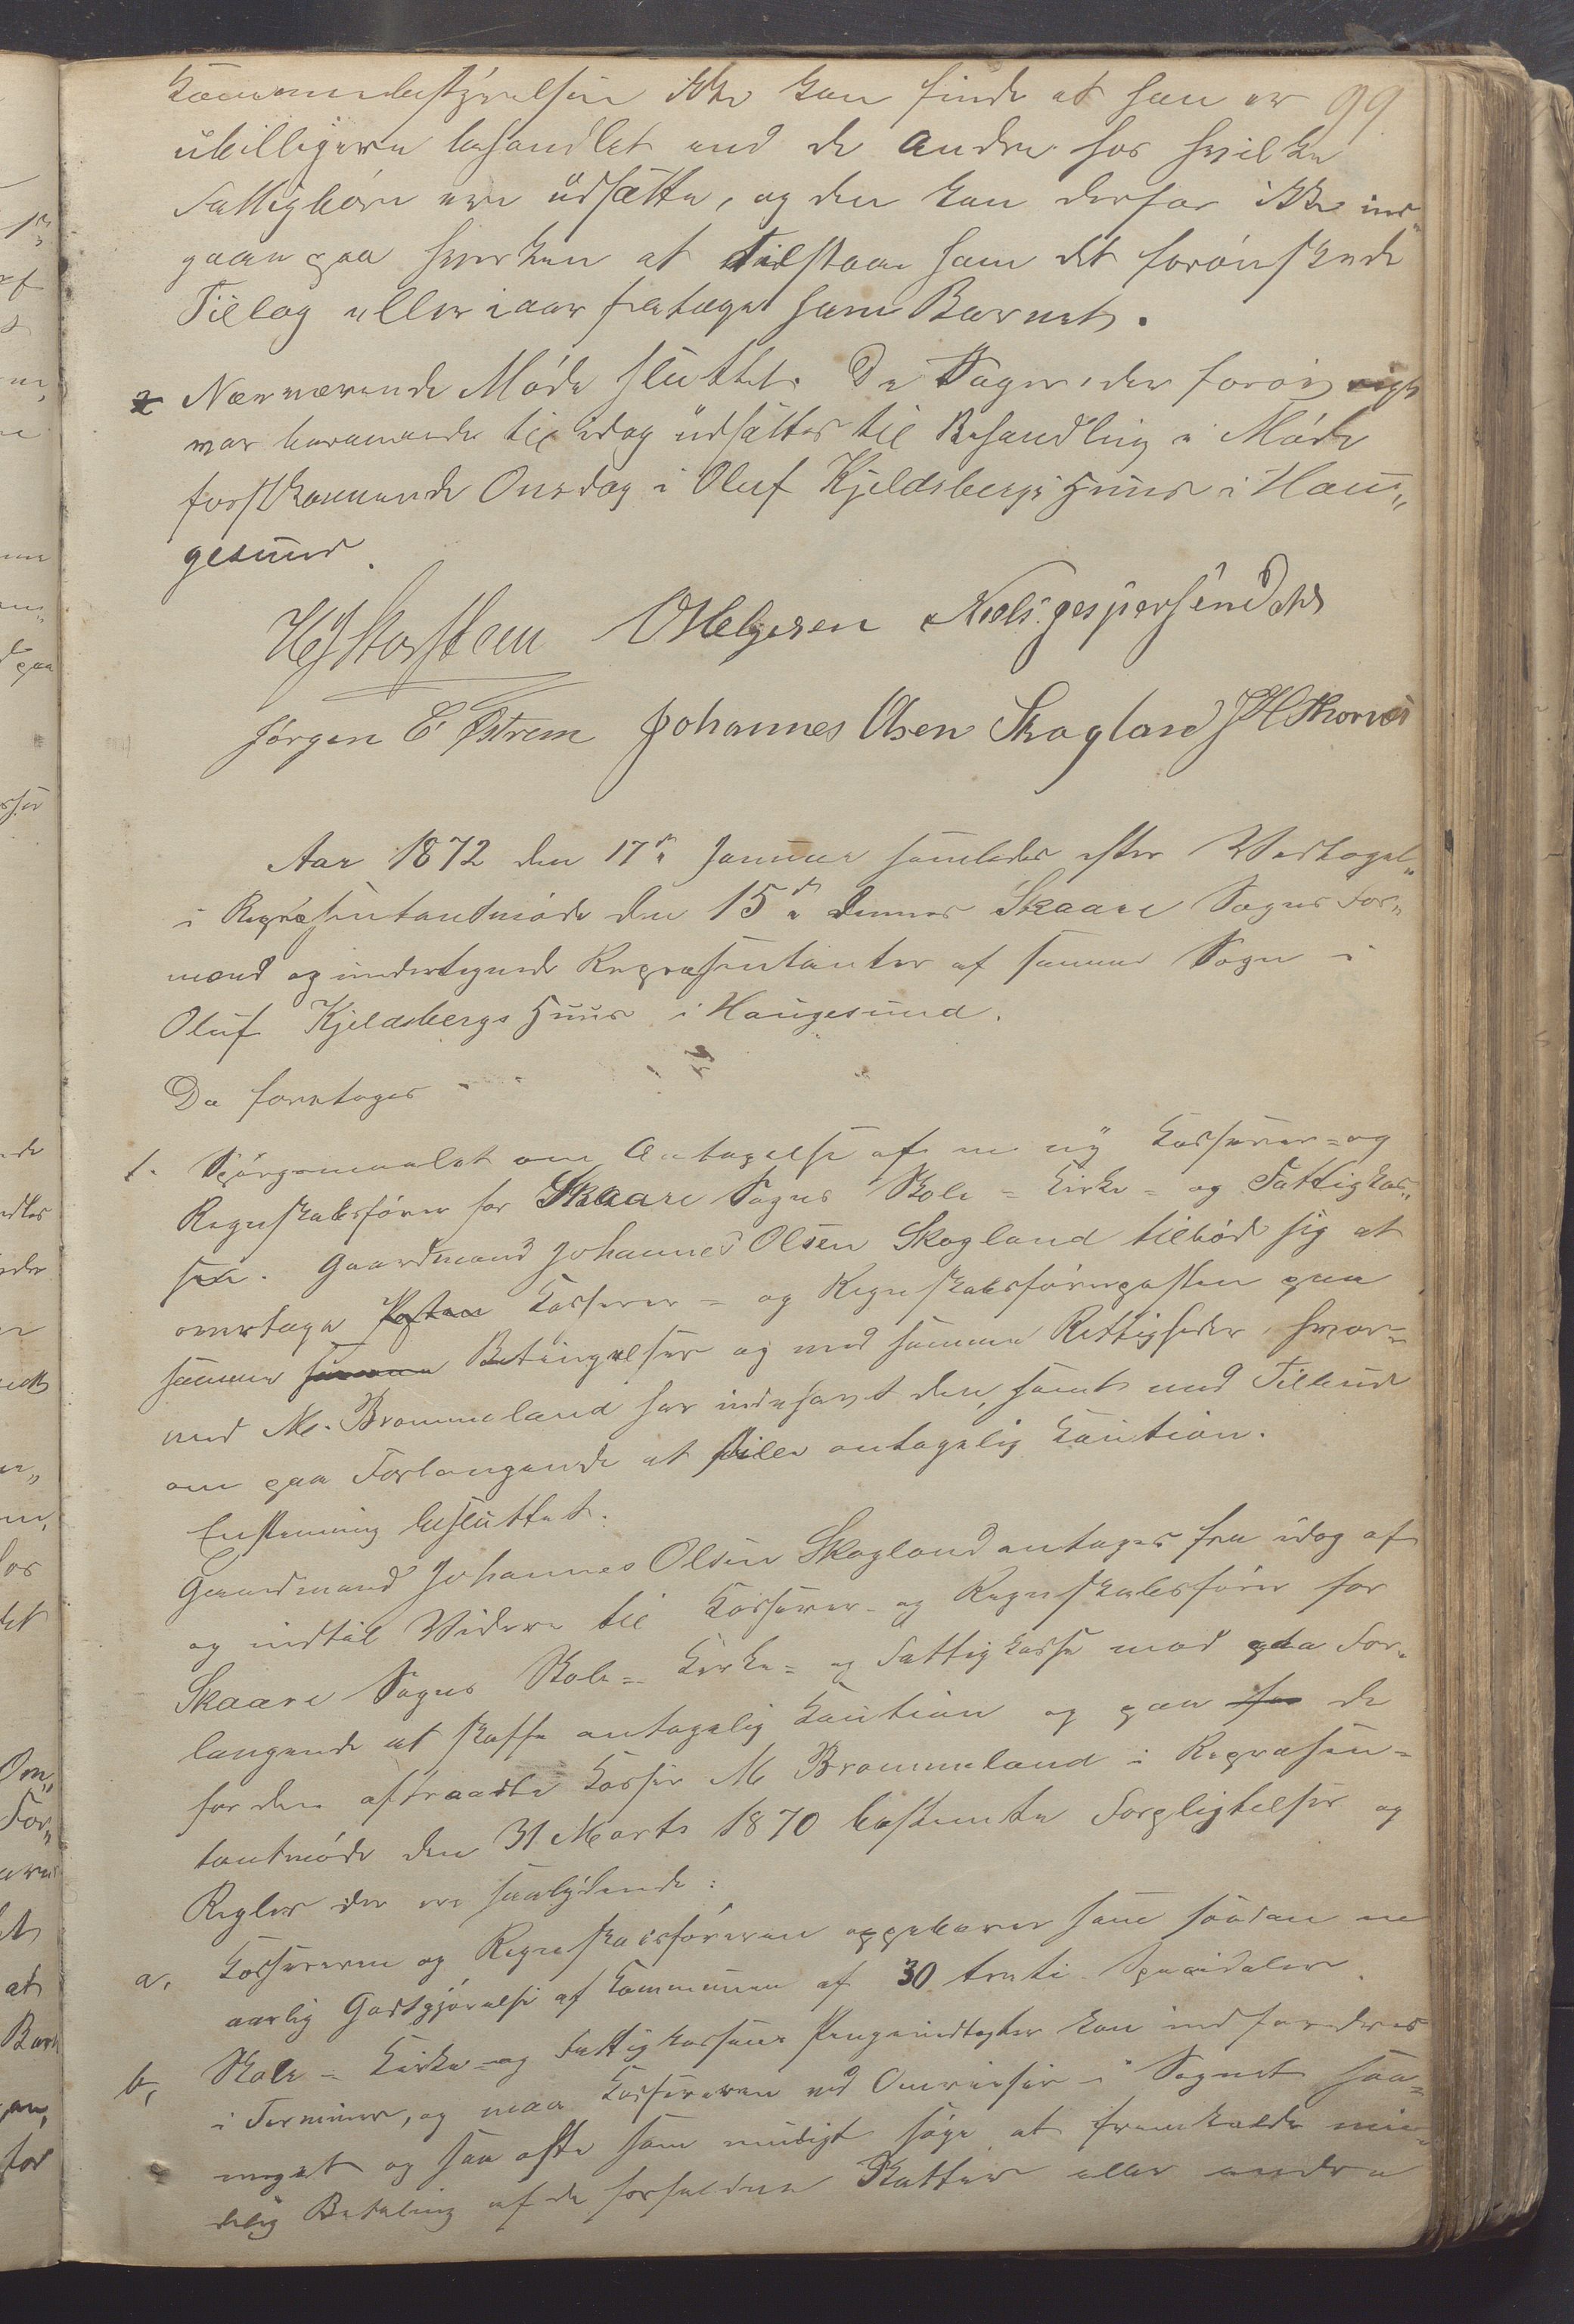 99
Kommunebestyrelsen ikke kan finde at han er
ubilligere behandlet end de andre hos hvilke
Fattigbørn ere udsatte, og den kan derfor ikke ind„
gaae paa hverken at tilstaae ham det forønskede
Tillæg eller iaar fratage ham Barnet.
Nærværende Møde sluttet. De Sager, der forøvrigt
var berammede til idag udsættes til Behandling i Møde
førstkommende Onsdag i Oluf Kjeldsbergs Huus i Hau„
gesund.
O Helgesen Niels Jespersen
Jørgen E Østrem Johannes Olsen Skogland
Aar 1872 den 17de Januar samledes efter Vedtagel„
i Repræsentantmøde den 15de dennes Skaare Sogns For„
mænd og undertegnede Repræsentanter af samme Sogn i
Oluf Kjeldsbergs Huus i Haugesund.
Da foretoges
1. Spørgsmaalet om Antagelse af en ny Kasserer- og
Regnskabsfører for Skaare Sogns Skole- Kirke- og Fattigkas„
se. Gaardmand Johannes Olsen Skogland tilbød sig at
overtage Posten Kasserer- og Regnskabsførerposten paa
samme samme Betingelser og med samme Rettigheder, hvor-
med M. Brommeland har indehavt den, samt med Tilbud
om paa Forlangende at stille antagelig Kaution.
Enstemmig besluttet:
Gaardmand Johannes Olsen Skogland antages fra idag af
og indtil Videre til Kasserer- og Regnskabsfører for
Skaare Sogns Skole- Kirke- og Fattigkasse mod paa For„
langende at skaffe antagelig Kaution og paa for de
for den aftraadte Kasserer M Brommeland i Repræsen-
tantmøde den 31 Marts 1870 bestemte Forpligtelser og
Regler der ere saalydende:
a, Kassereren og Regnskabsføreren oppebærer som saadan en
aarlig Godtgjørelse af Kommunen af 30 treti Speciedaler.
b, Skole- Kirke- og Fattigkassens Pengeindtægter kan indfordres
i Terminer, og maa Kassereren ved Omreiser i Sognet saa-
meget og saa ofte som muligt søge at fremkalde min-
delig Betaling af de forfaldne Skatter eller andre